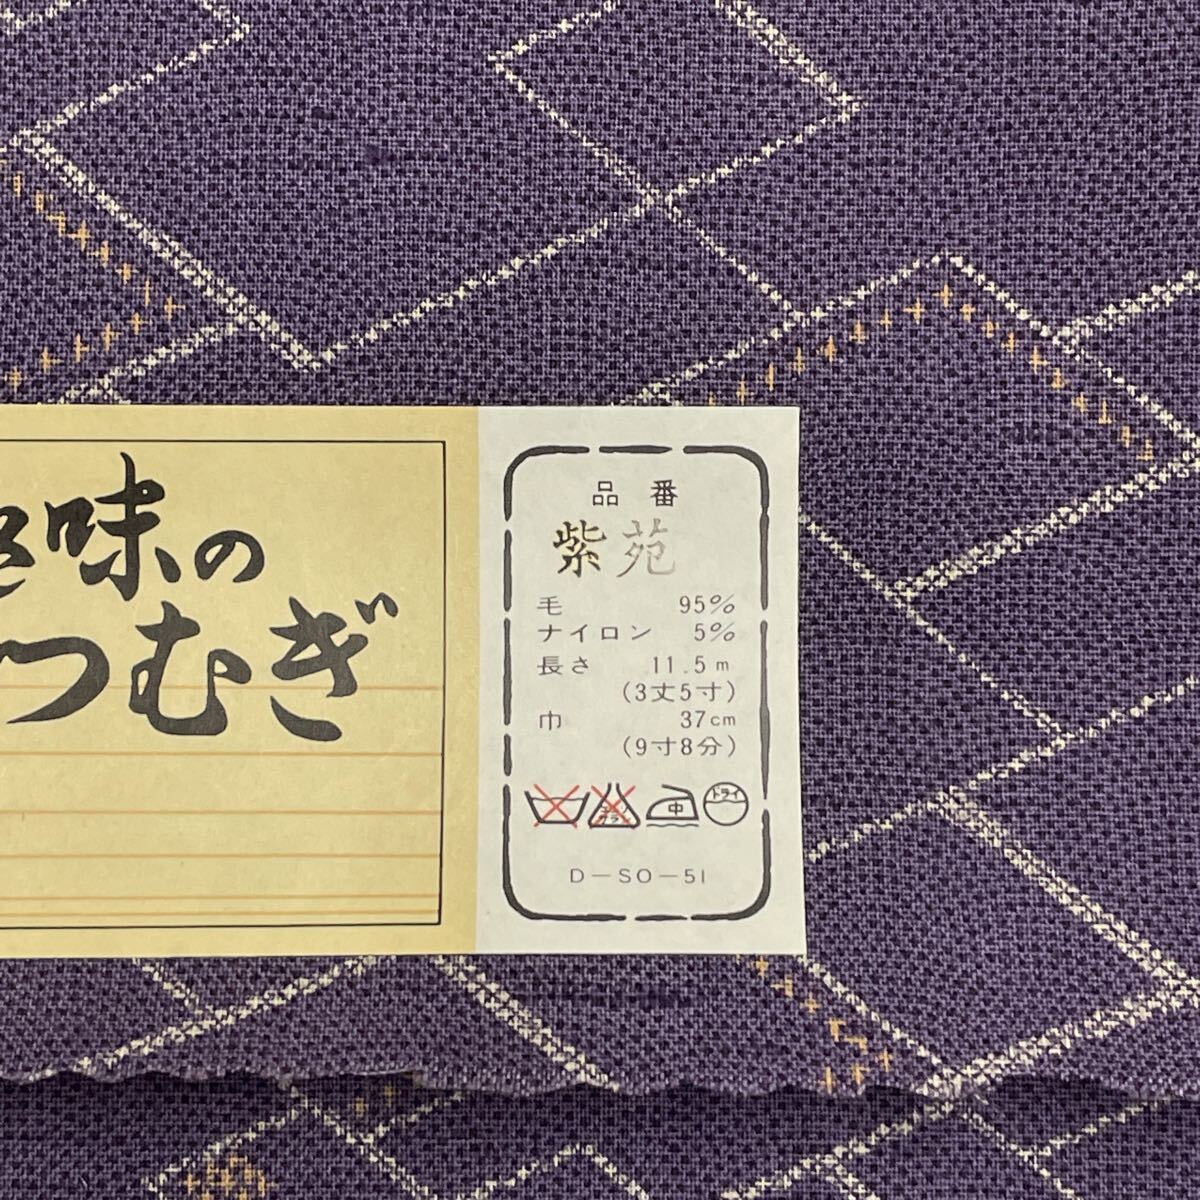 味の
つむぎ
品番
紫苑
毛 95%
ナイロン 5%
長さ 11.5m
(3丈5寸)
巾 37cm
(9寸8分)
中
ドライ
D-SO-51